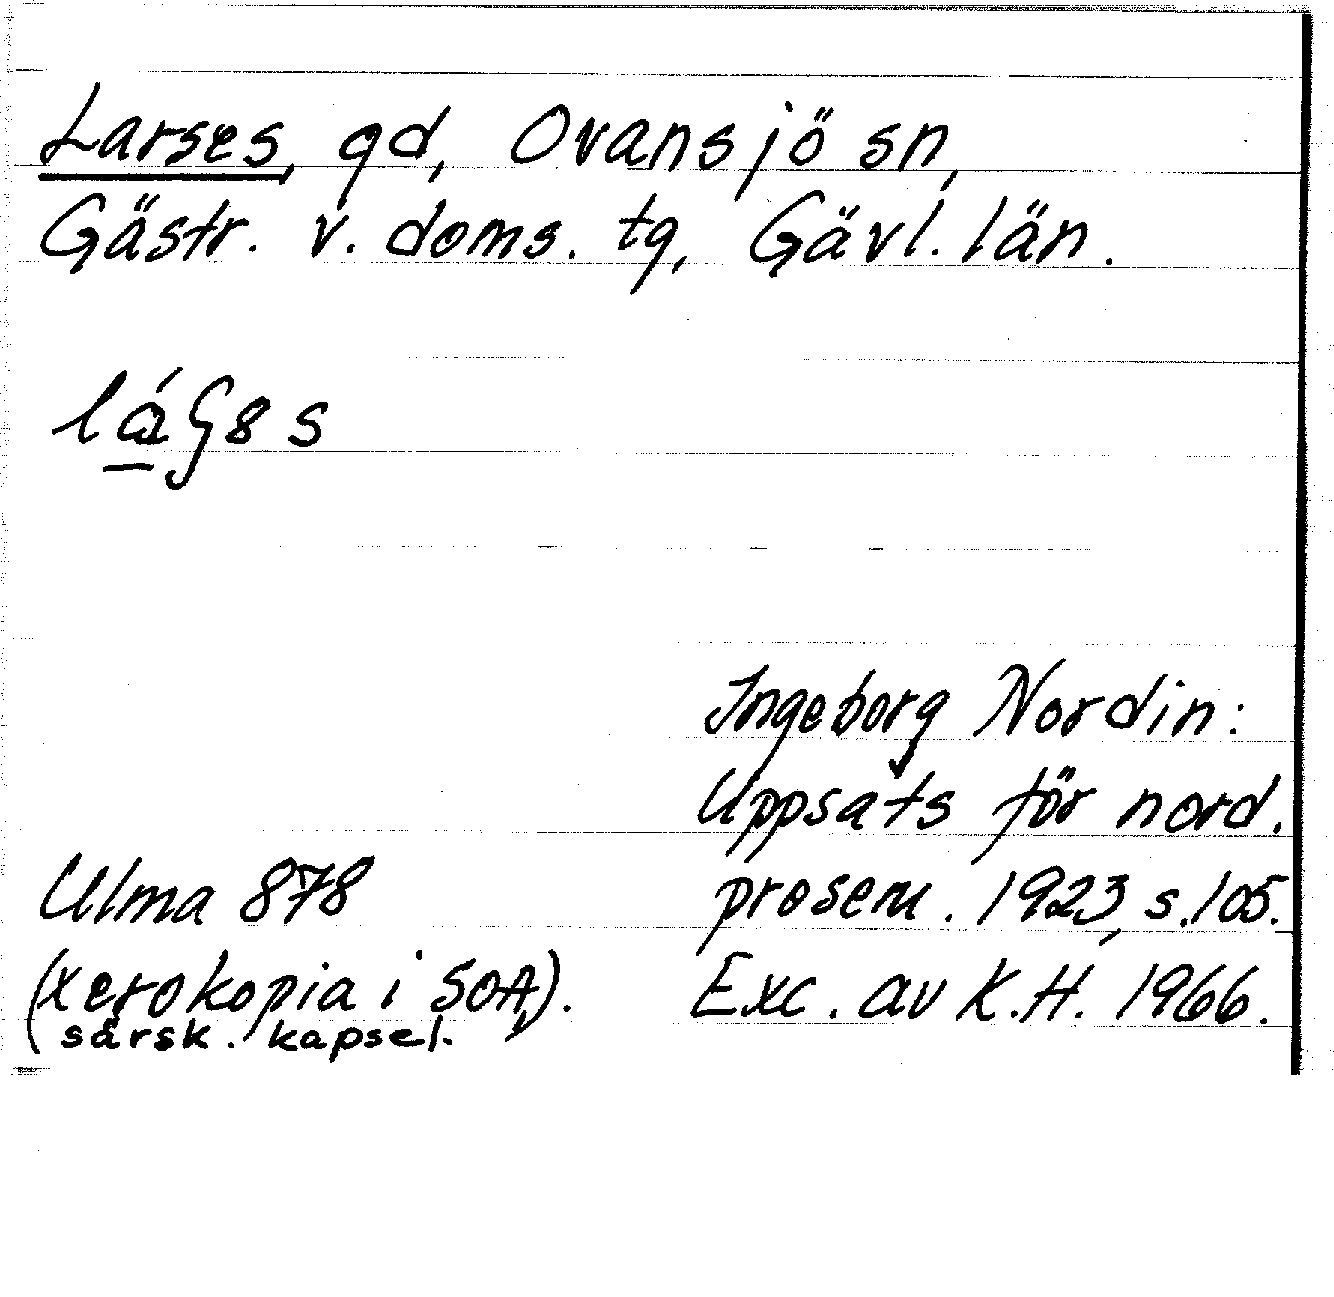 Larses, gd, Ovansjö sn,
Gästr. v. doms. tg, Gävl. län.
Ingeborg Nordin:
Uppsats för nord.
Ulma 878 prosem. 1923, s. 105.
(xerokopia i SOA, Exc. av K.H. 1966.
särsk. kapsel).